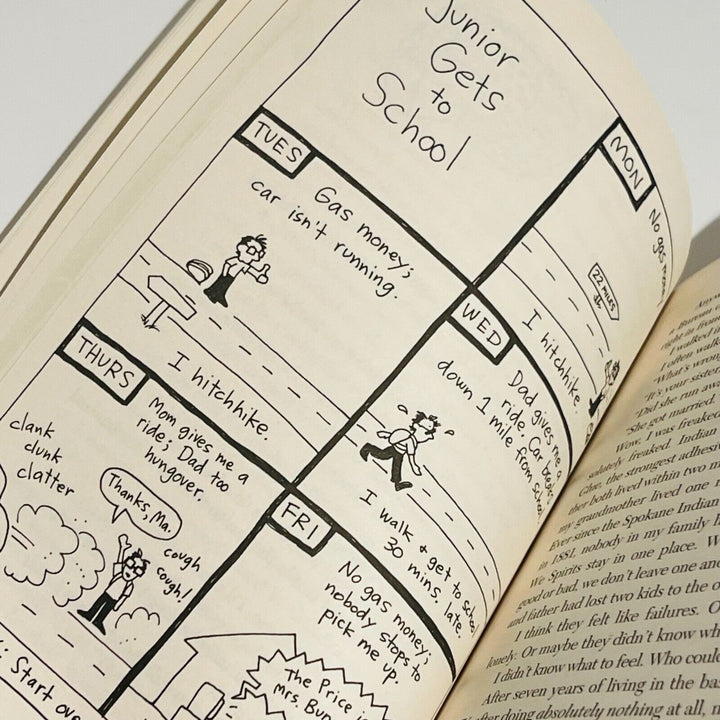 Junior
Gets
to
School
MON
No gas
22 MILES
I hitchhike.
TUES
Gas money;
car isn't running.
I hitchhike.
WED
Dad gives me a
ride. Car breaks
down 1 mile from school
I walk + get to school
30 mins. late.
THURS
Mom gives me a
ride; Dad too
hungover.
clank
clunk
clatter
Thanks, Ma.
cough
cough!
Start
FRI
No gas money;
nobody stops to
pick me up.
The Price
Mrs.
a Bureau
right in
I walked
I often walk
"What's wrong
"It's your sister
"Did she run
"She got married
Wow, I was freaked
solutely freaked. Indian
Glue, the strongest
ther both lived within two
my grandmother lived one
Ever since the Spokane Indian
in 1881, nobody in my family
We Spirits stay in one place. W
good or bad, we don't leave one
and father had lost two kids to the
I think they felt like failures. O
lonely. Or maybe they didn't know
I didn't know what to feel. Who could
After seven years of living in the
after doing absolutely nothing at all,